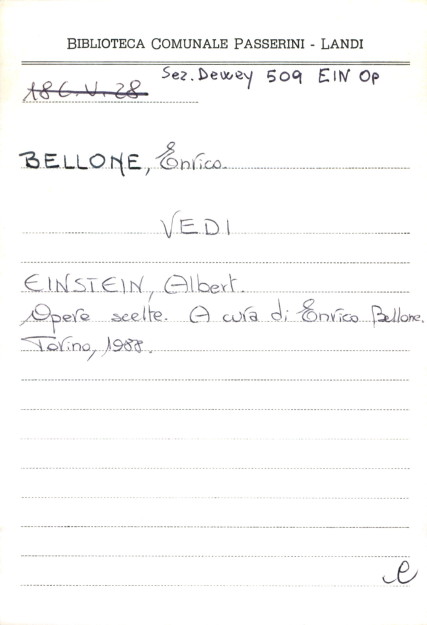 BIBLIOTECA COMUNALE PASSERINI - LANDI
Sez. Dewey 509 EIN Op
18 C. V. 28
BELLONE, Enrico.
VEDI
EINSTEIN, Albert.
Opere scelte. A cura di Enrico Bellone.
Torino, 1988.
e